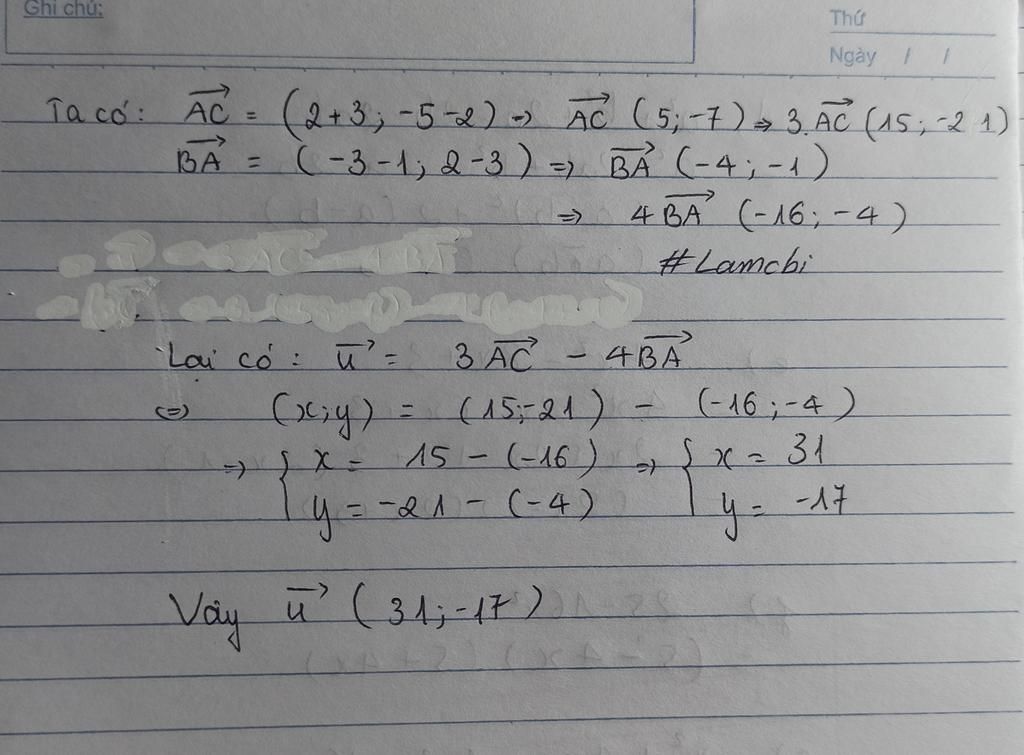 Ghi chú:
Thứ
Ngày / /
Ta có: AC→ = (2+3; -5-2) => AC→ (5; -7) => 3.AC→ (15; -21)
BA→ = (-3-1; 2-3) => BA→ (-4; -1)
=> 4BA→ (-16; -4)
#Lamcbi
Lại có: u→ = 3AC→ - 4BA→
<=> (x;y) = (15;-21) - (-16;-4)
=> { x = 15 - (-16) => { x = 31
y = -21 - (-4) y = -17
Vậy u→ (31; -17)